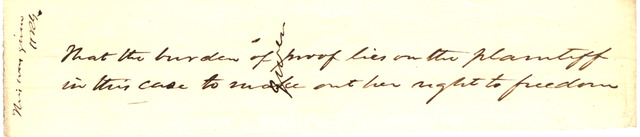 That the burden of proof lies on the plaintiff
in this case to make out her right to freedom
given